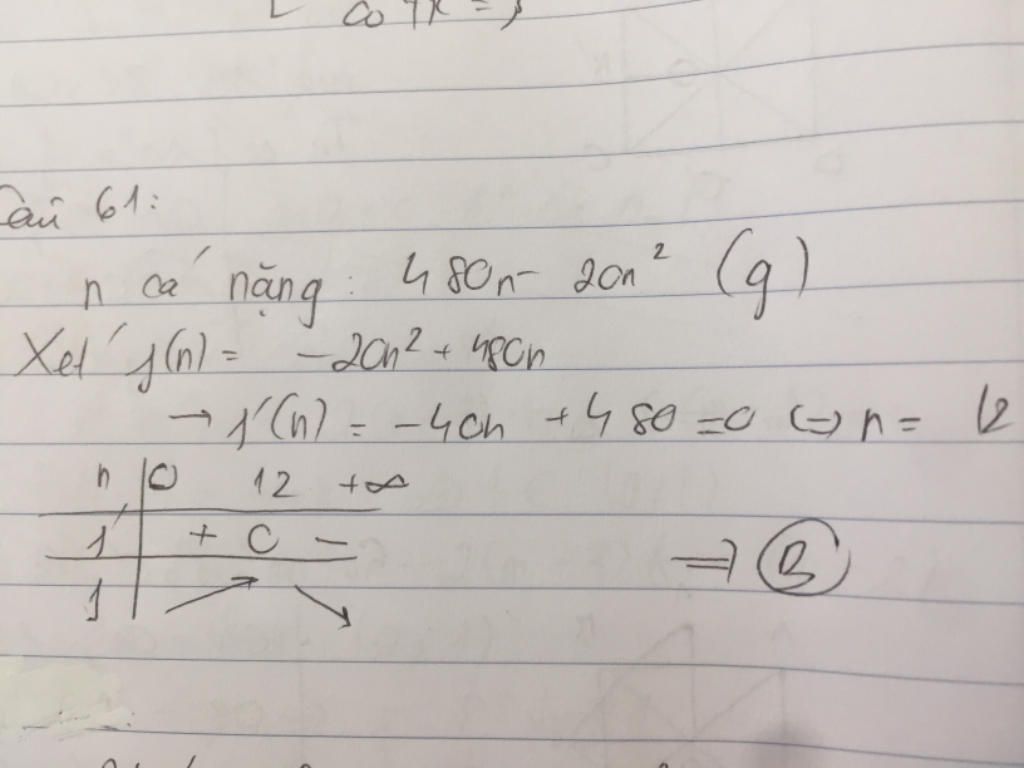 Câu 61:
n cá nặng: 480n - 20n² (g)
Xét f(n) = -20n² + 480n
→ f'(n) = -40n + 480 = 0 ⇔ n = 12
n 0 12 +∞
f' + 0 -
⇒ B
f